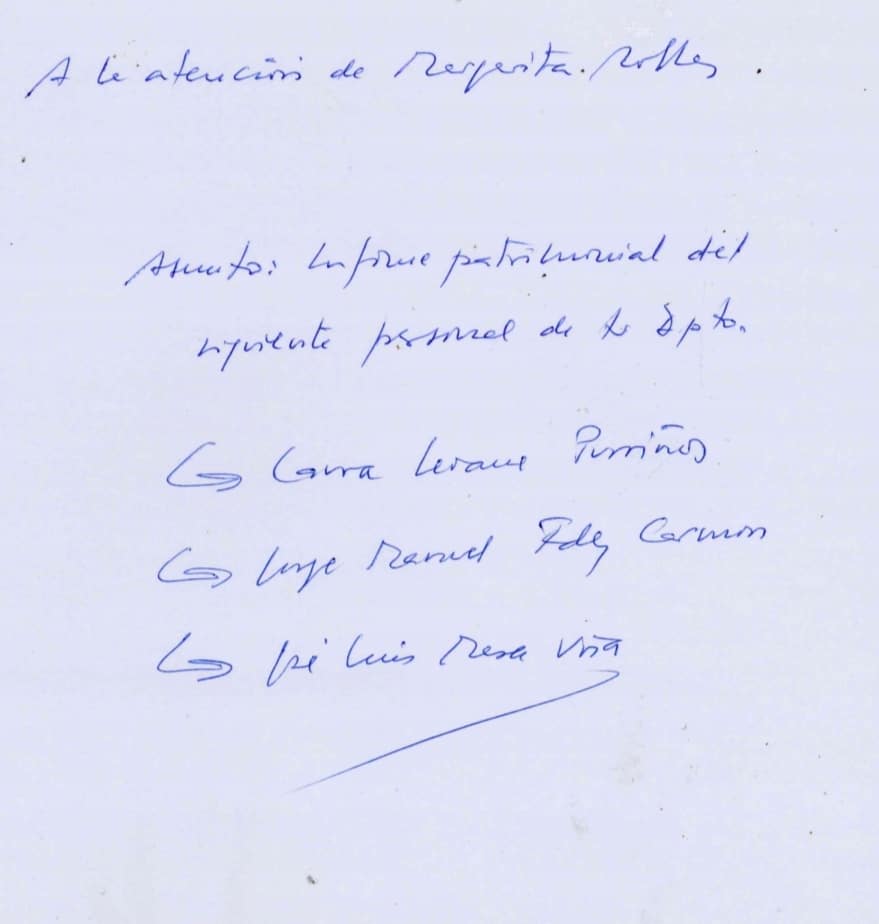 A la atención de Margarita Robles.
Asunto: Informe patrimonial del
siguiente personal de tu Dpto.
Laura Seoane Purriños
Jorge Manuel Fdez Carmon
José Luis Mesa Viña